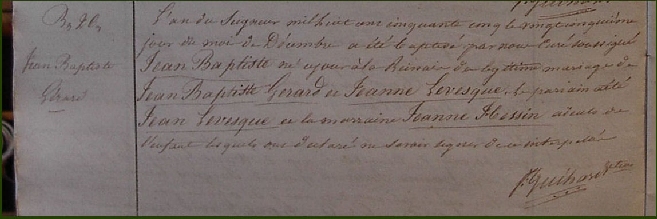 B. 26.
Jean Baptiste
Gérard
L'an du Seigneur mil huit cent cinquante cinq le vingt cinquième
jour du mois de Décembre a été baptisé par nous Curé soussigné
Jean Baptiste né ce jour à la du légitime mariage de
Jean Baptiste Gerard et Jeanne Levesque, le parain a été
Jean Levesque et la marraine Jeanne Hessin aieuls de
l'enfant lesquels ont déclaré ne savoir signer de ce interpelés
F. Guihard